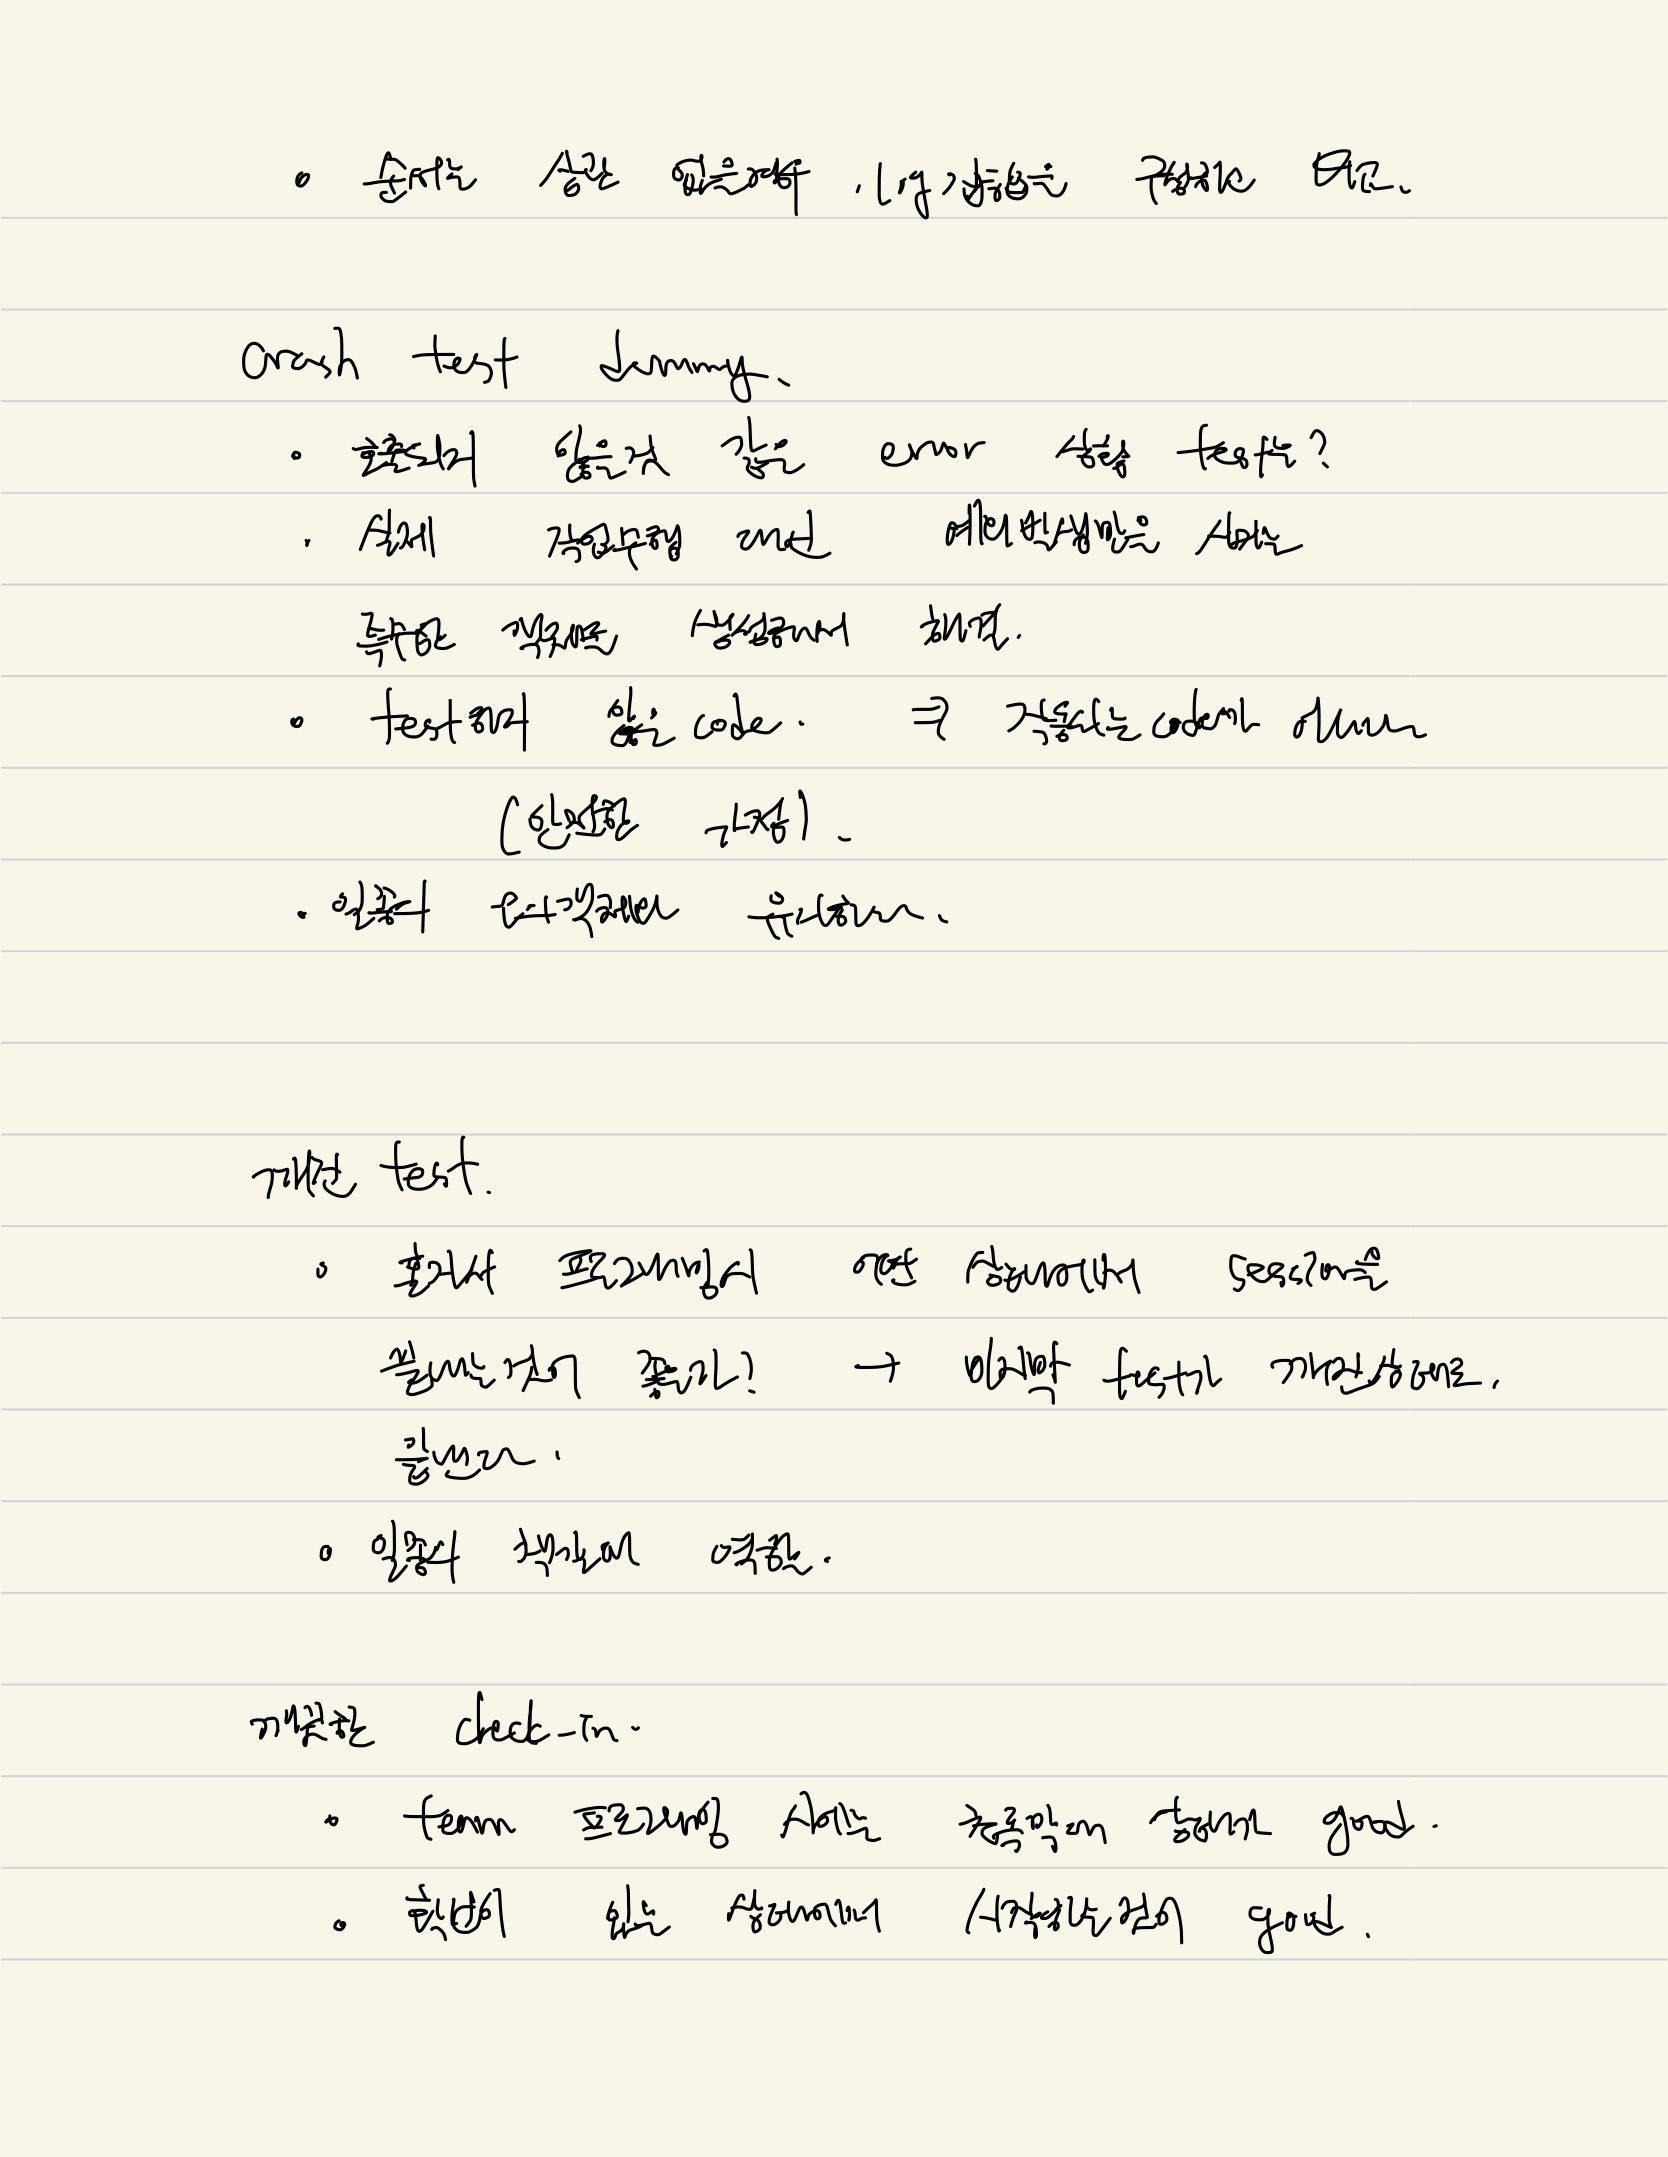 • 순서는 상관 없을경우 . log 집합을 구성하고 비교.
Crash test dummy.
• 호출되지 않을것 같은 error 상황 test는?
• 실제 작업수행 대신 예외발생만을 시키는
특수한 객체를 생성해서 해결.
• test하지 않은 code. ⇒ 작동하는 code가 아니다
(안전한 가정).
• 일종의 모의객체와 유사하다.
깨진 test.
• 혼자서 프로그래밍시 어떤 상태에서 session을
끝내는것이 좋은가? → 마지막 test가 깨진상태로.
끝낸다.
• 일종의 책갈피 역할.
깨끗한 check-in.
• team 프로그래밍 시에는 초록막대 상태가 good.
• 확신이 있는 상태에서 시작하는것이 good.